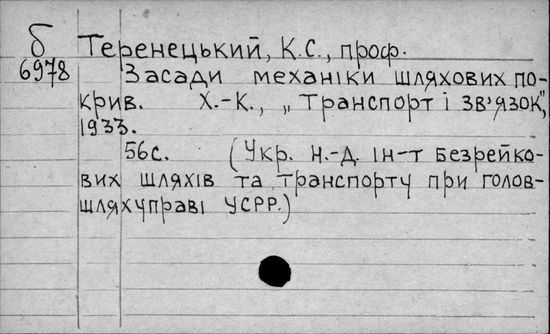 б Теренецький, К.С., проф.
6978 Засади механіки шляхових по-
крив. Х.-К., „Транспорт і зв'язок",
1933.
56с. (Укр. Н.-Д. ін-т безрейко-
вих шляхів та транспорту при голов-
шляхуправі УСРР.)